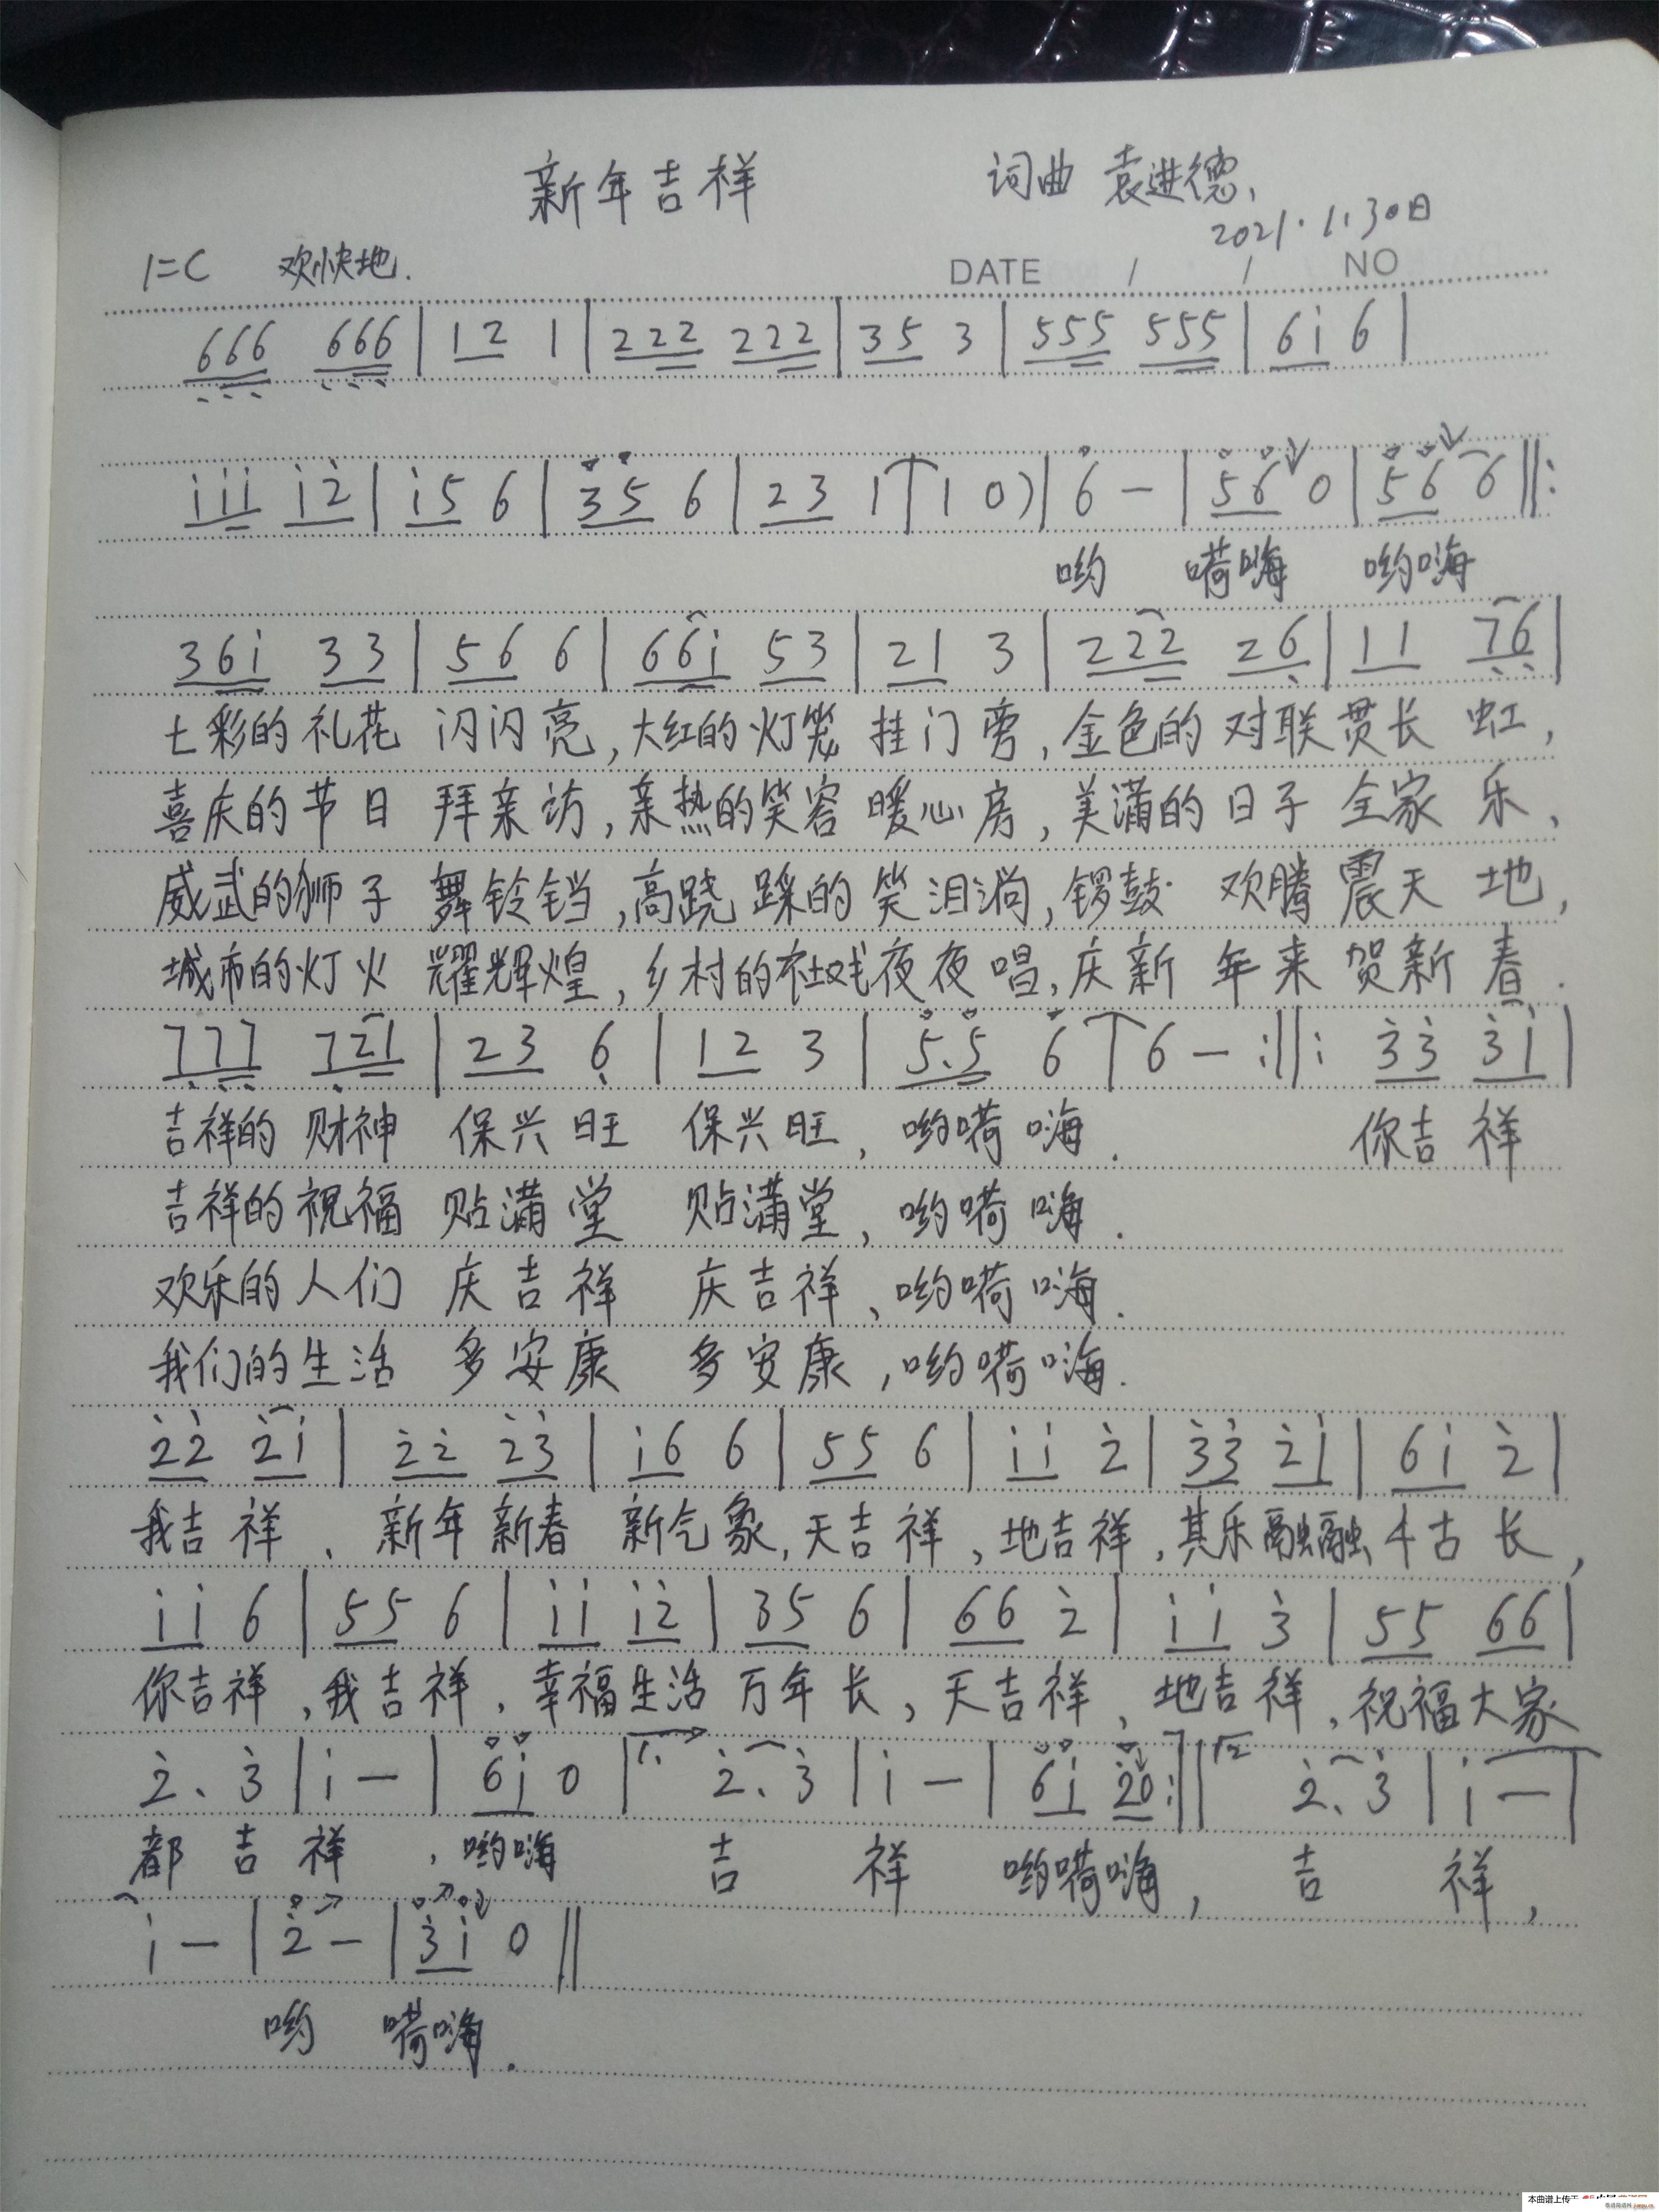 新年吉祥 词曲 袁进德、
2021.1.30日
1=C 欢快地.
DATE / / NO
666 666 | 12 1 | 222 222 | 35 3 | 555 555 | 6i 6 |
iii i2̇ | i5 6 | 35 6 | 23 1 | 1 0) | 6 — | 56 0 | 56 6 ‖:
哟 嗬嗨 哟嗨
36i 33 | 56 6 | 66i 53 | 21 3 | 222 26̣ | 11 7̣6̣ |
七彩的礼花 闪闪亮,大红的灯笼 挂门旁,金色的对联贯长虹,
喜庆的节日 拜亲访,亲热的笑容暖心房,美满的日子全家乐、
威武的狮子 舞铃铛,高跷踩的笑泪淌,锣鼓欢腾震天地,
城市的灯火 耀辉煌,乡村的社戏夜夜唱,庆新年来贺新春.
7̣7̣7̣ 7̣21 | 23 6̣ | 12 3 | 5.5 6 | 6 — :‖: 3̇3̇ 3̇i |
吉祥的财神 保兴旺 保兴旺,哟嗬嗨. 你吉祥
吉祥的祝福 贴满堂 贴满堂,哟嗬嗨.
欢乐的人们 庆吉祥 庆吉祥、哟嗬嗨.
我们的生活 多安康 多安康,哟嗬嗨.
2̇2̇ 2̇i | 2̇2̇ 2̇3̇ | i6 6 | 55 6 | ii 2̇ | 3̇3̇ 2̇i | 6i 2̇ |
我吉祥、新年新春 新气象,天吉祥,地吉祥,其乐融融千古长,
ii 6 | 55 6 | ii i2̇ | 35 6 | 66 2̇ | ii 3̇ | 55 66 |
你吉祥,我吉祥,幸福生活万年长,天吉祥、地吉祥,祝福大家
2̇、3̇ | i — | 6i 0 | 1. 2̇、3̇ | i — | 6i 2̇0 :‖ 2 2̇、3̇ | i — |
都吉祥,哟嗨 吉祥 哟嗬嗨,吉祥,
i — | 2̇ — | 3̇i 0 ‖
哟 嗬嗨.
本曲谱上传于